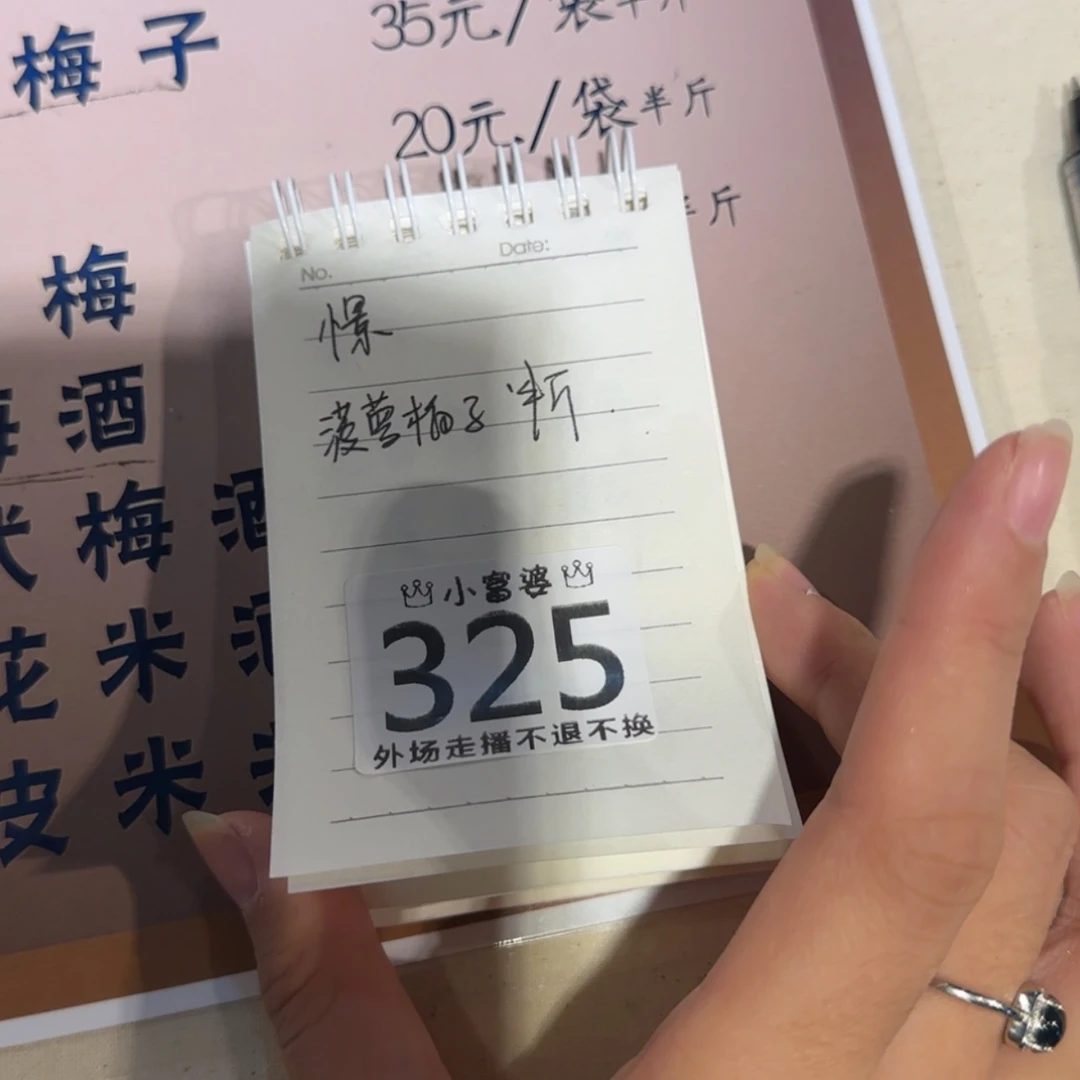 梅子
35元/袋半斤
20元/袋半斤
半斤
梅
梅酒
梅酒
花米酒
皮米
No. Date:
憬
菠萝柚子 半斤
小富婆
325
外场走播不退不换